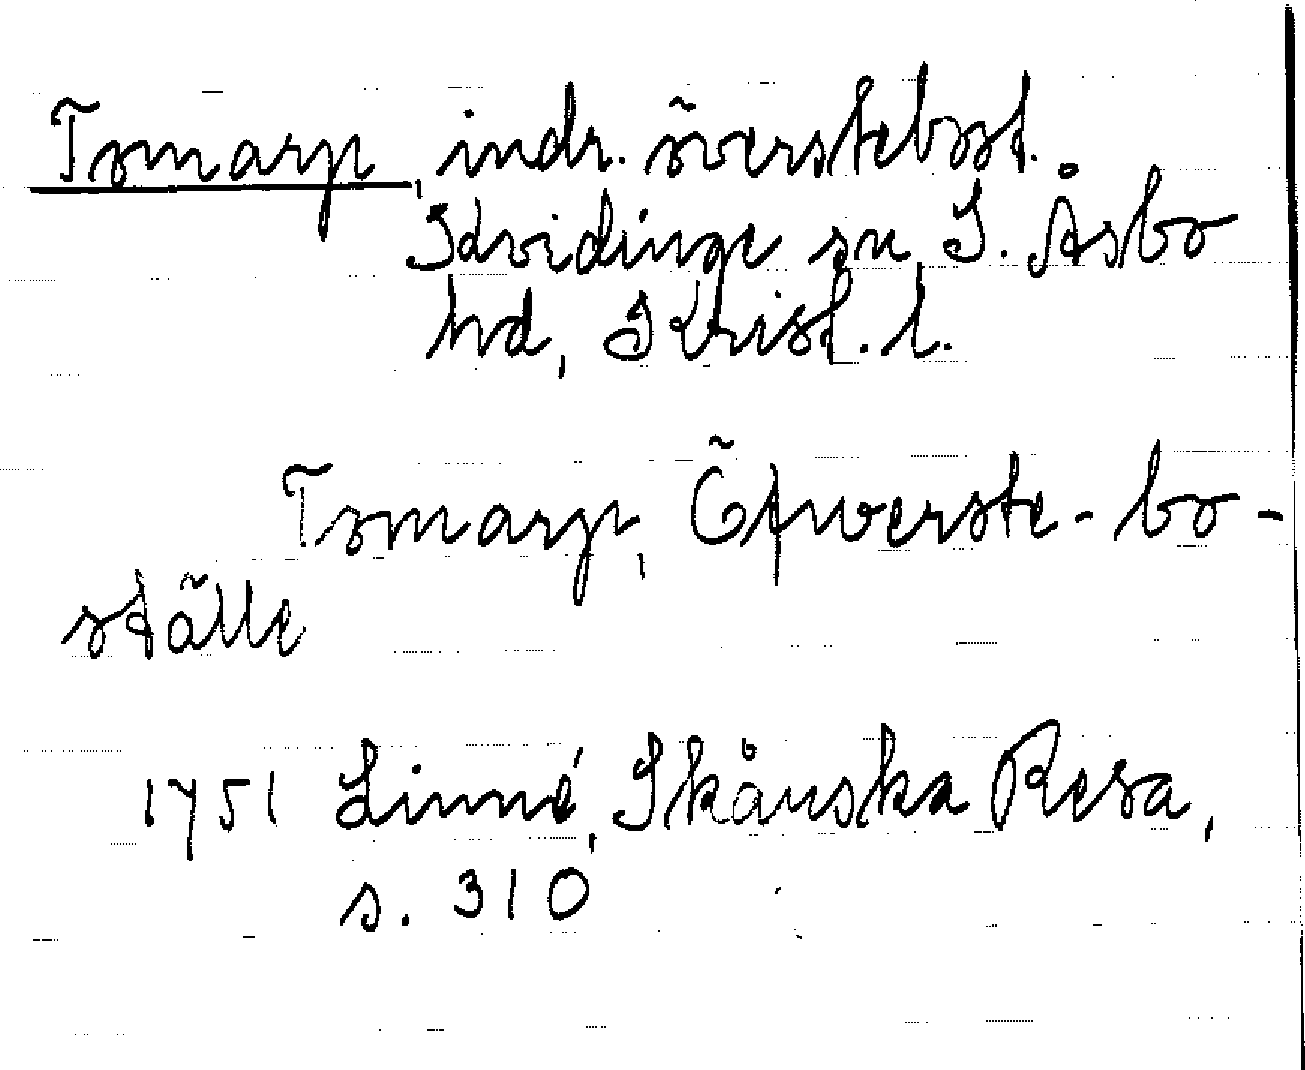 Tomarp, indr. överstebost.
Kvidinge sn, S. Åsbo
hd, Krist. l.
Tomarp, Öfwerste-bo-
ställe
1751 Linné, Skånska Resa,
s. 310